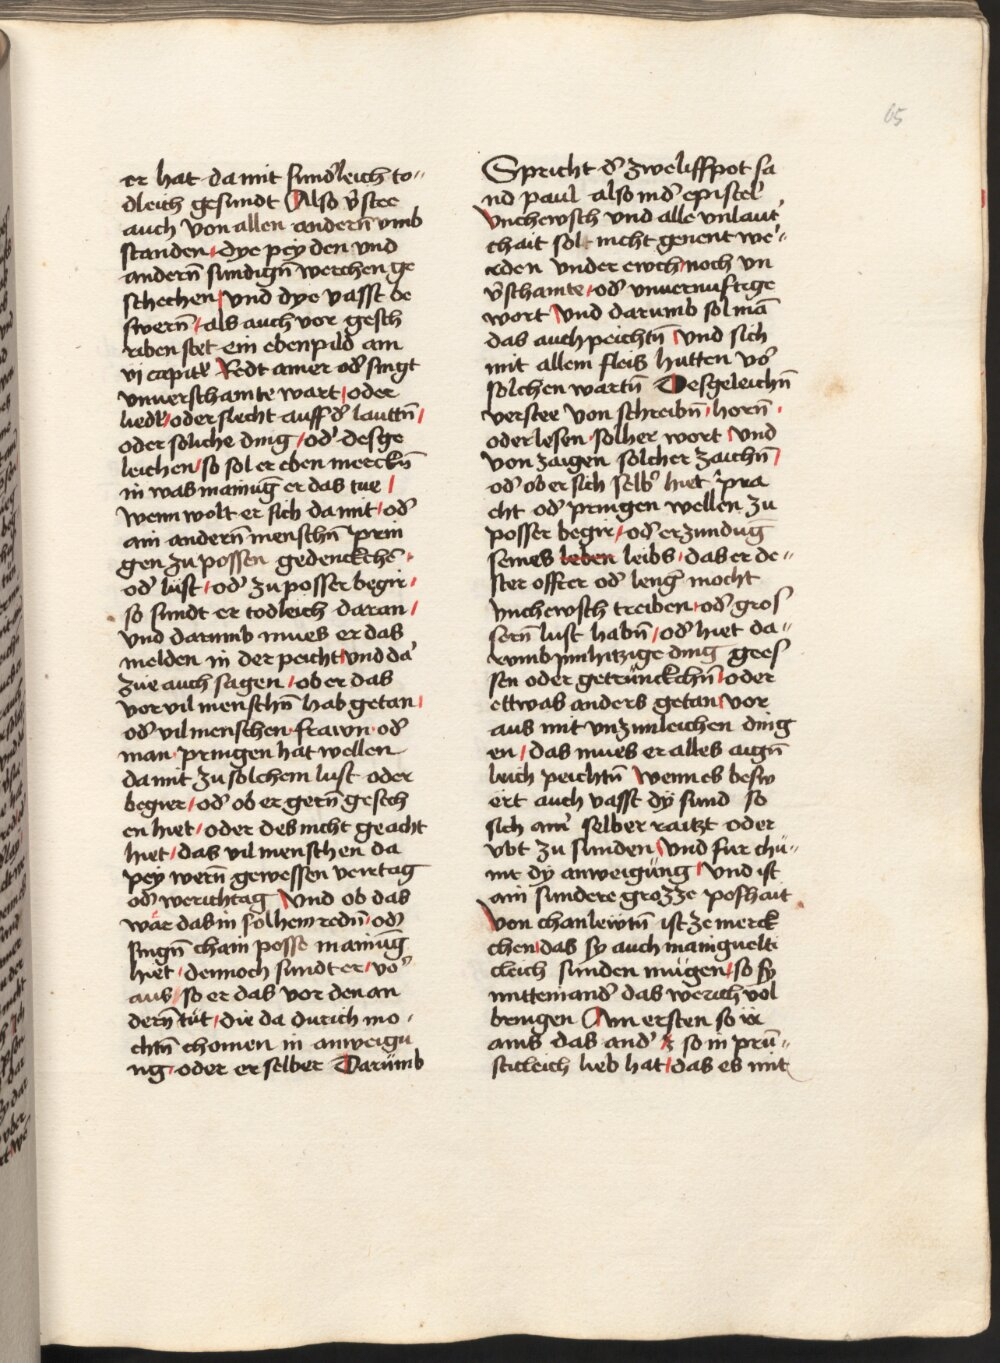 65
er hat da mit sundleich to=
dleich gesundt Also v̄stee
auch von allen andern̄ vmb
standen / dye pey den vnd
andern̄ sundign̄ werchen ge
schechen / vnd dye vasst be
swern̄ / als auch vor gesch
riben stet ein ebenpild am
vj capitel Redt ainer od̄ singt
vnuerschamte wart / oder
liedl / oder slecht auff d̄ lauttn̄ /
oder soliche ding / od̄ desge
leichen / so sol er eben merckn̄
in was mainūg er das tue /
wenn wolt er sich da mit / od̄
ain andern̄ menschn̄ prin
gen zu possen gedenckchē /
od̄ lust / od̄ zu posser begir /
so sundt er todleich daran /
vnd darumb mues er das
melden in der peicht / vnd da
zue auch sagen / ob er das
vor vil menschn̄ hab getan /
od̄ vil menschen frawn od̄
man pringen hat wellen
da mit zu solchem lust oder
begier / od̄ ob er gern̄ gesech
en hiet / oder des nicht geacht
hiet / das vil menschen da
pey wern̄ gewessen veirtag
od̄ werichtag Vnd ob das
wär das in solhem redn̄ od̄
singn̄ chain posse mainūg
hiet / dennoch sundt er / vor
aus / so er das vor den an
dern̄ tüt / die da durich mo
chtn̄ chomen in anweigu
ng / oder er selber Darümb
Spricht d̄ zweliffpot sa
nd paul also in d̄ epistel
Vnchewsch vnd alle vnlaut
chait sol nicht genent we=
rden vnder ewch / noch vn
v̄schamte / od̄ vnuernuftige
wort Vnd darumb sol mā
das auch peichtn̄ Vnd sich
mit allem fleis hutten vor
solchen wartn̄ Desgeleichn̄
verstee von schreibn̄ / horn̄ /
oder lesen solher wort Vnd
von zaigen solcher zaichn̄ /
od̄ ob er sich selbs hiet pra
cht od̄ pringen wellen zu
posser begir / od̄ erzundūg
seines leben leibs / das er de=
ster offter od̄ lenḡ mocht
Vnchewsch treiben / od̄ gros
sern̄ lust habn̄ / od̄ hiet da=
rumb jnnhitzige ding gees
sen oder getrünckchn̄ / oder
ettwas anders getan / vor
aus mit vnzimleichen ding
en / das mues er alles aign̄
leich peichtn̄ Wenn es besw
ert auch vasst dy sund so
sich ainer selber raitzt oder
vbt zu sunden Vnd fur chü=
mt dy anweigüng / Vnd ist
ain sundere grozze poshait
Von chanlewtn̄ ist ze merck
chen das sy auch maniguelti
cleich sunden mügen / so sy
mitteinand̄ das werich vol
bringen Am ersten so ir
ains das and̄ so in prün=
sticleich lieb hat / das es mit